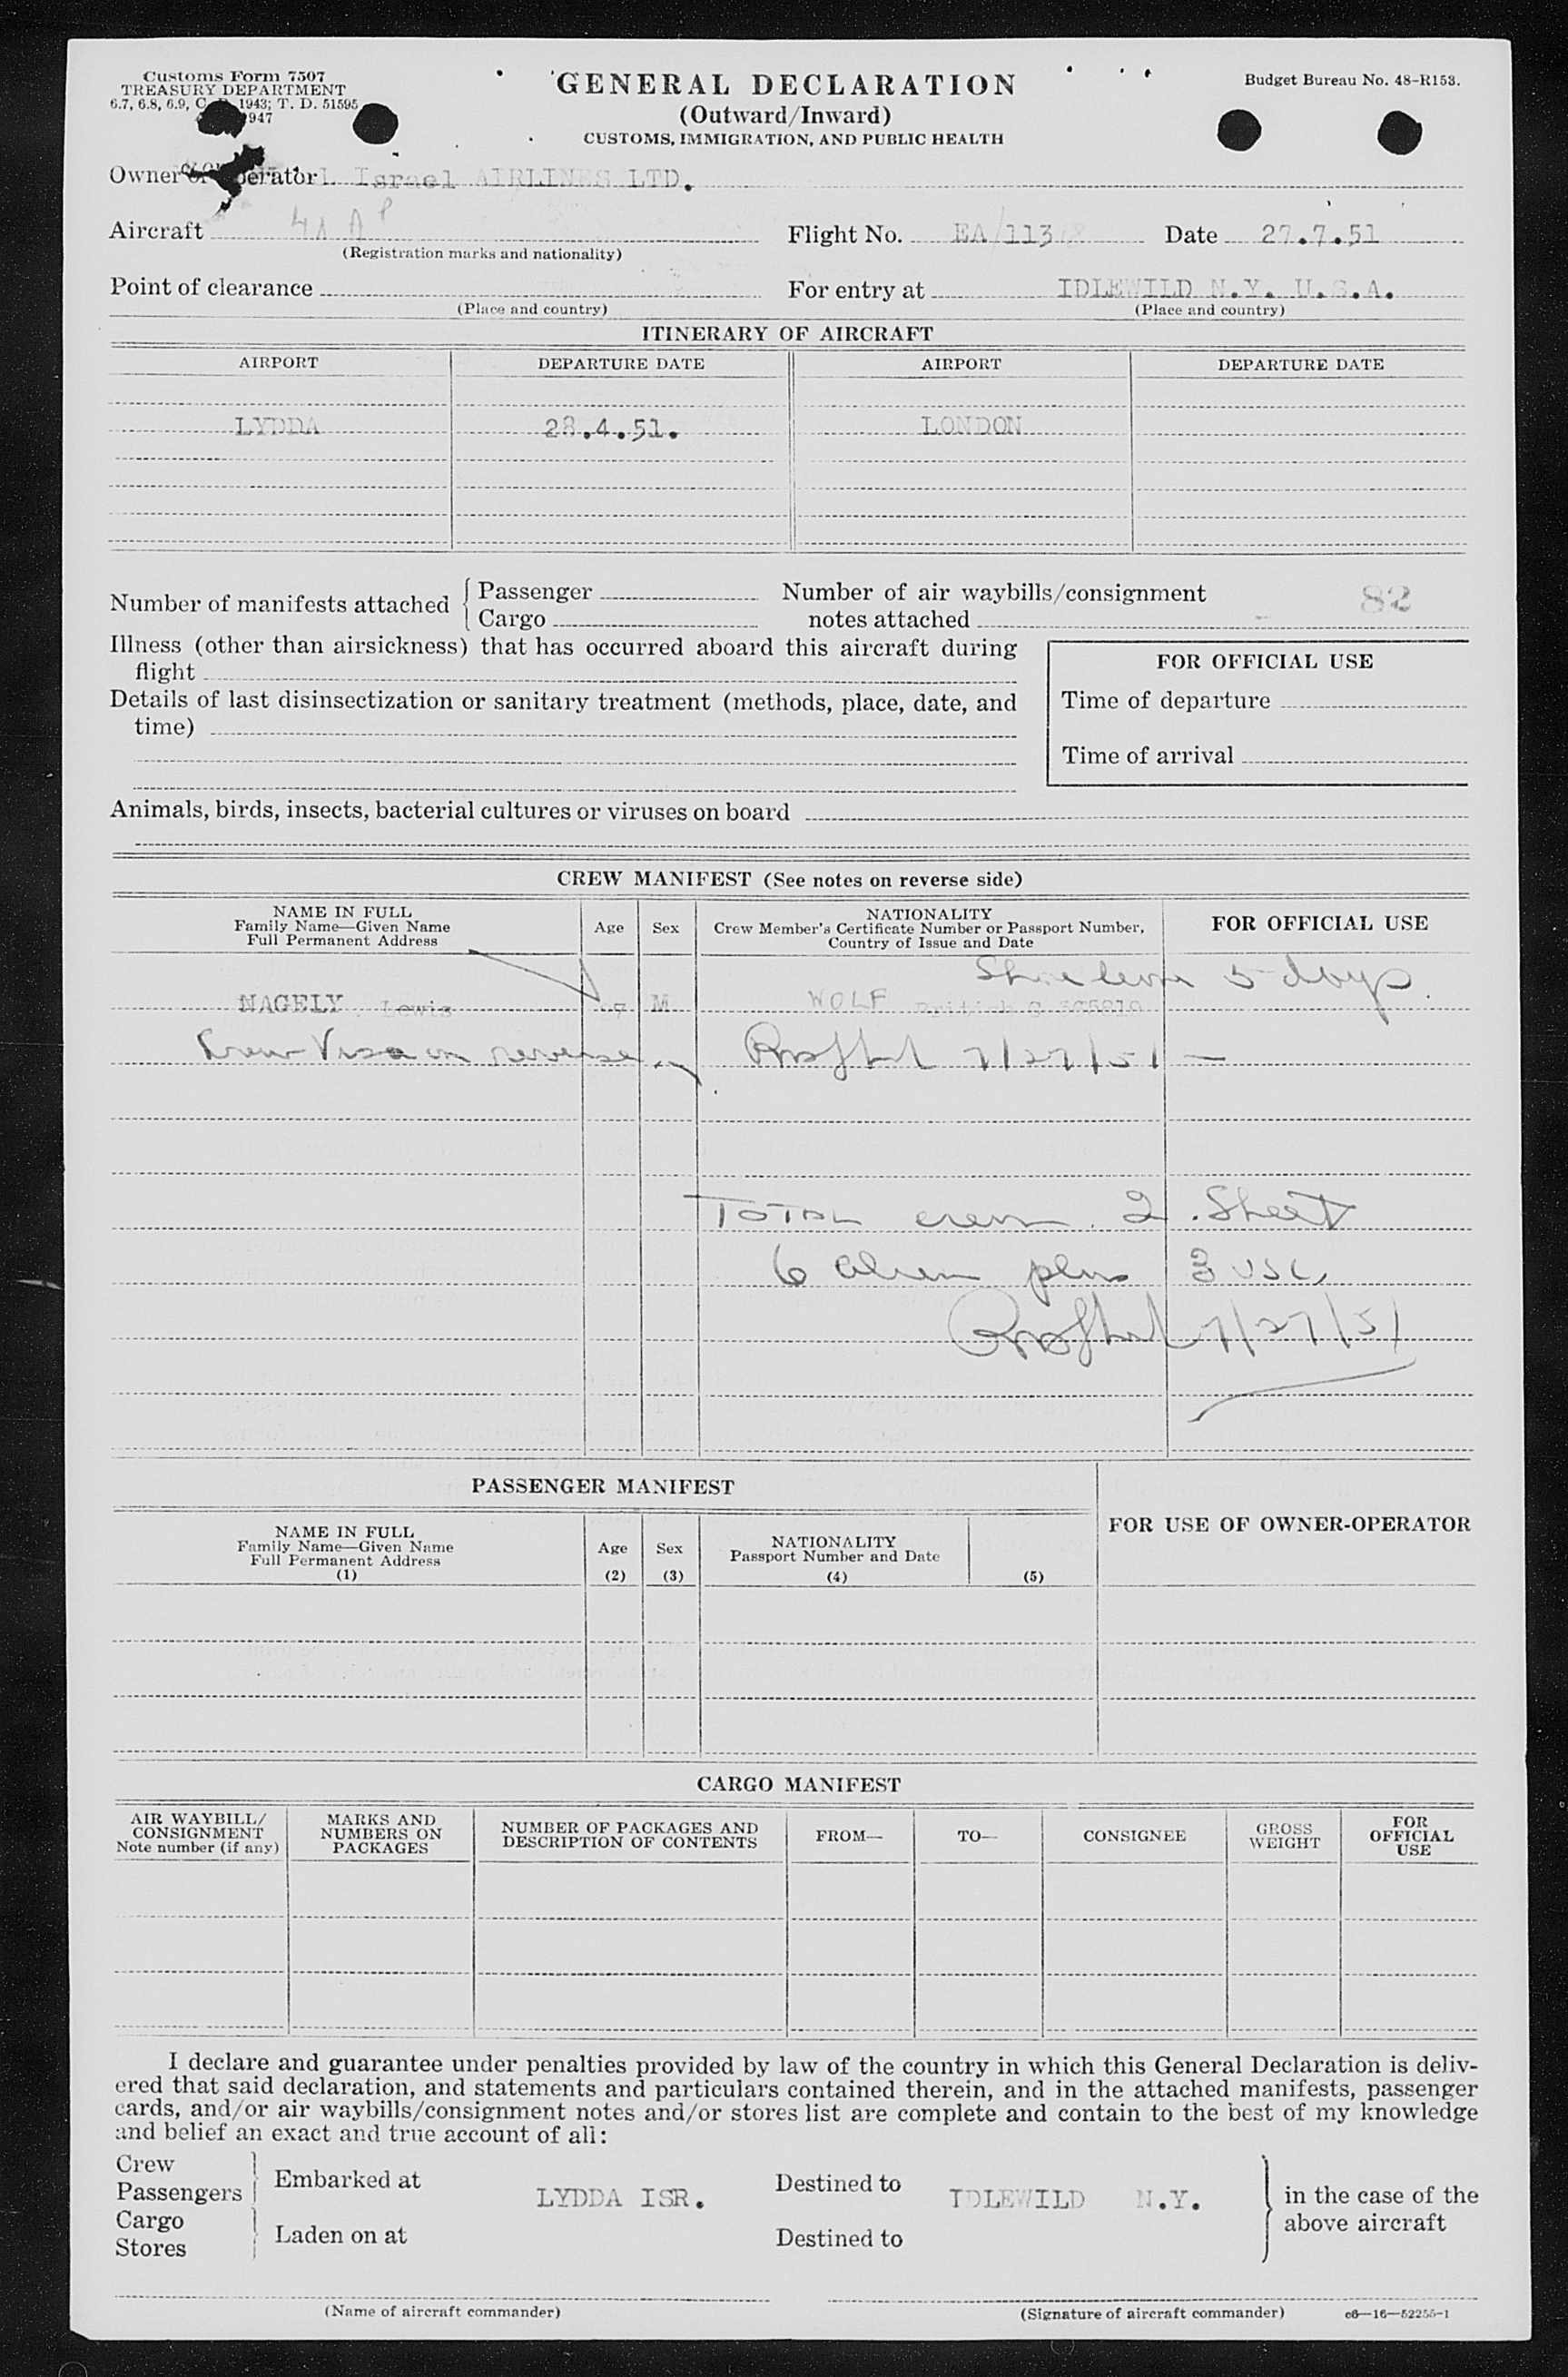 Customs Form 7507
GENERAL DECLARATION
Budget Bureau No. 48-R153.
TREASURY DEPARTMENT
6.7, 6.8, 6.9, C. 1943; T. D. 51595
(Outward/Inward)
CUSTOMS, IMMIGRATION, AND PUBLIC HEALTH
Owner or Operator Israel AIRLINES LTD.
Aircraft 4X A
Flight No. EA/113 Date 27.7.51
(Registration marks and nationality)
Point of clearance
For entry at IDLEWILD N.Y. U.S.A.
(Place and country)
(Place and country)
ITINERARY OF AIRCRAFT
AIRPORT DEPARTURE DATE AIRPORT DEPARTURE DATE
LYDDA 28.4.51. LONDON
Number of manifests attached { Passenger
Cargo
Number of air waybills/consignment 82
notes attached
Illness (other than airsickness) that has occurred aboard this aircraft during
flight
Details of last disinsectization or sanitary treatment (methods, place, date, and
time)
FOR OFFICIAL USE
Time of departure
Time of arrival
Animals, birds, insects, bacterial cultures or viruses on board
CREW MANIFEST (See notes on reverse side)
NAME IN FULL
Family Name—Given Name
Full Permanent Address
Age
Sex
NATIONALITY
Crew Member's Certificate Number or Passport Number,
Country of Issue and Date
FOR OFFICIAL USE
Shore leave 5 days
NAGELY Lewis M WOLF British
Crew Visa on reverse 7/27/51
TOTAL crew 2 Sheet
6 Alien plus 3 USC
7/27/51
PASSENGER MANIFEST
FOR USE OF OWNER-OPERATOR
NAME IN FULL
Family Name—Given Name
Full Permanent Address
(1)
Age
(2)
Sex
(3)
NATIONALITY
Passport Number and Date
(4)
(5)
CARGO MANIFEST
AIR WAYBILL/
CONSIGNMENT
Note number (if any)
MARKS AND
NUMBERS ON
PACKAGES
NUMBER OF PACKAGES AND
DESCRIPTION OF CONTENTS
FROM—
TO—
CONSIGNEE
GROSS
WEIGHT
FOR
OFFICIAL
USE
I declare and guarantee under penalties provided by law of the country in which this General Declaration is deliv-
ered that said declaration, and statements and particulars contained therein, and in the attached manifests, passenger
cards, and/or air waybills/consignment notes and/or stores list are complete and contain to the best of my knowledge
and belief an exact and true account of all:
Crew
Passengers
Embarked at LYDDA ISR. Destined to IDLEWILD N.Y.
Cargo
Stores
Laden on at Destined to
in the case of the
above aircraft
(Name of aircraft commander)
(Signature of aircraft commander)
c6—16—52255-1